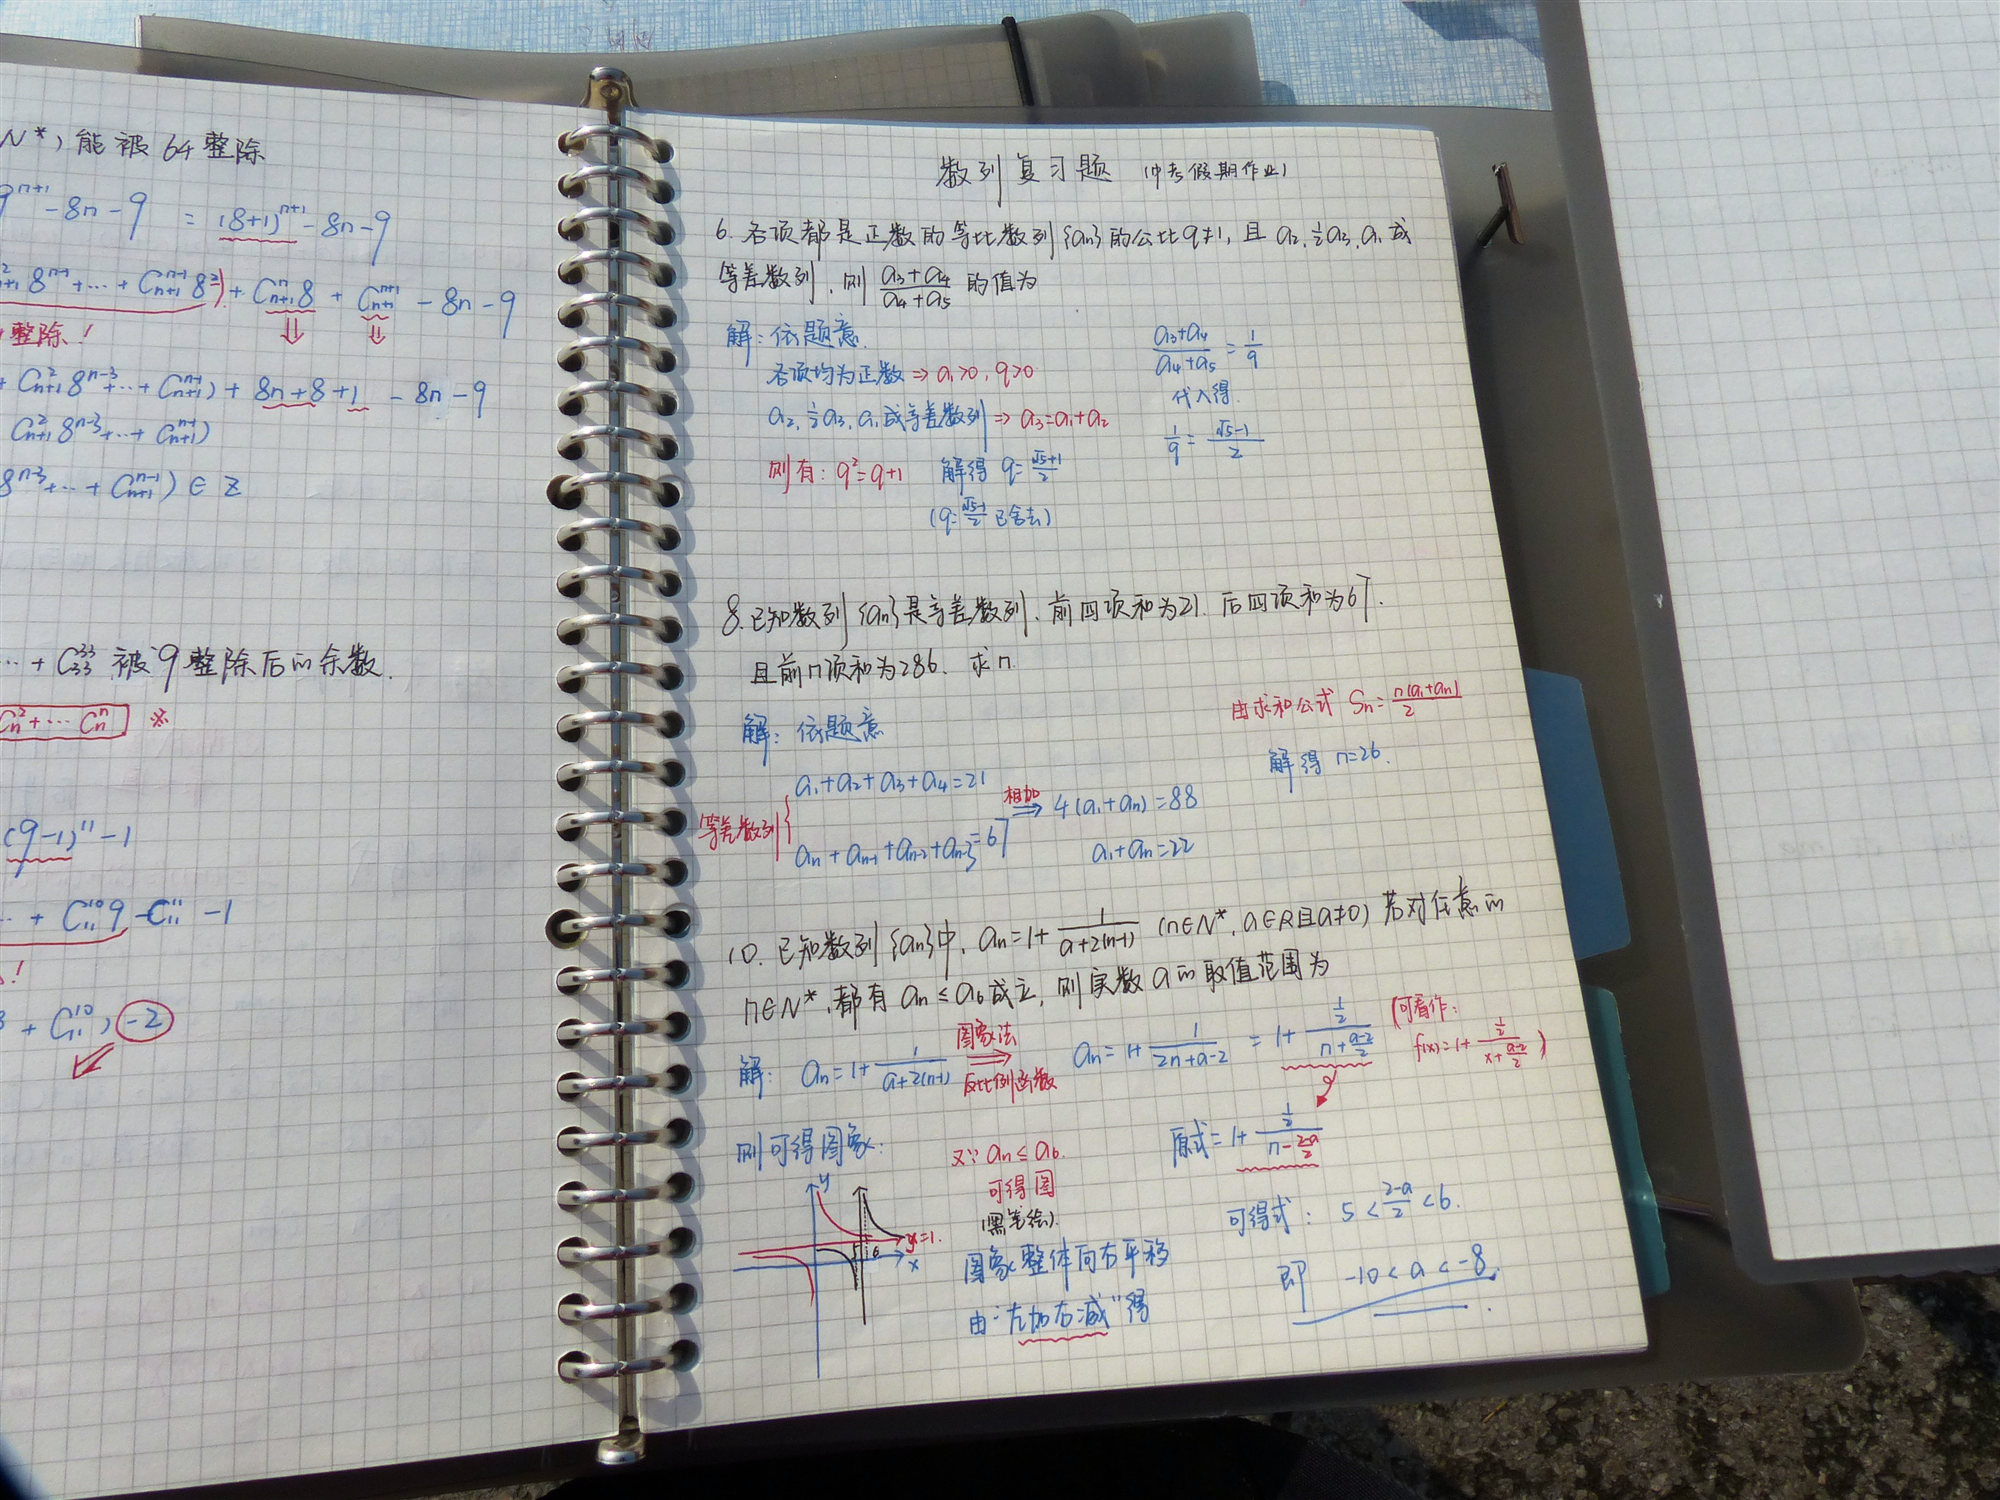 N*)能被64整除
9^{n+1}-8n-9 = (8+1)^{n+1}-8n-9
C_{n+1}^{2}8^{n-1}+…+C_{n+1}^{n-1}8^2)+C_{n+1}^{n}8+C_{n+1}^{n+1}-8n-9
整除!
+C_{n+1}^{2}8^{n-3}+…+C_{n+1}^{n-1})+8n+8+1-8n-9
C_{n+1}^{2}8^{n-3}+…+C_{n+1}^{n-1})
8^{n-3}+…+C_{n+1}^{n-1})∈Z
…+C_{33}^{33}被9整除后的余数.
C_n^2+…C_n^n ※
(9-1)^{11}-1
…+C_{11}^{10}9-C_{11}^{11}-1
!
+C_{11}^{10})-2
数列复习题 (中考假期作业)
6. 各项都是正数的等比数列{an}的公比q≠1,且a₂,½a₃,a₁成
等差数列,则 (a₃+a₄)/(a₄+a₅) 的值为
解:依题意.
各项均为正数⇒a₁>0,q>0
a₂,½a₃,a₁成等差数列⇒a₃=a₁+a₂
则有:q²=q+1 解得 q=(√5+1)/2
(q=(√5-1)/2 已舍去)
(a₃+a₄)/(a₄+a₅)=1/q
代入得.
1/q=(√5-1)/2
8.已知数列{an}是等差数列,前四项和为21.后四项和为67.
且前n项和为286.求n.
解:依题意
等差数列{
a₁+a₂+a₃+a₄=21
an+an-1+an-2+an-3=67
相加
⇒4(a₁+an)=88
a₁+an=22
由求和公式 Sn=n(a₁+an)/2
解得 n=26.
10.已知数列{an}中,an=1+1/(a+2(n-1)) (n∈N*,a∈R且a≠0)若对任意的
n∈N*,都有an≤a₆成立,则实数a的取值范围为
解: an=1+1/(a+2(n-1)) 图象法 ⇒ 反比例函数 an=1+1/(2n+a-2) =1+½/(n+(a-2)/2)
(可看作:
f(x)=1+½/(x+(a-2)/2))
原式=1+½/(n-(2-a)/2)
则可得图象:
y
y=1.
x
5
6
又∵an≤a₆.
可得图
(黑笔绘).
图象整体向右平移
由"左加右减"得
可得式: 5<(2-a)/2<6.
即 -10<a<-8.